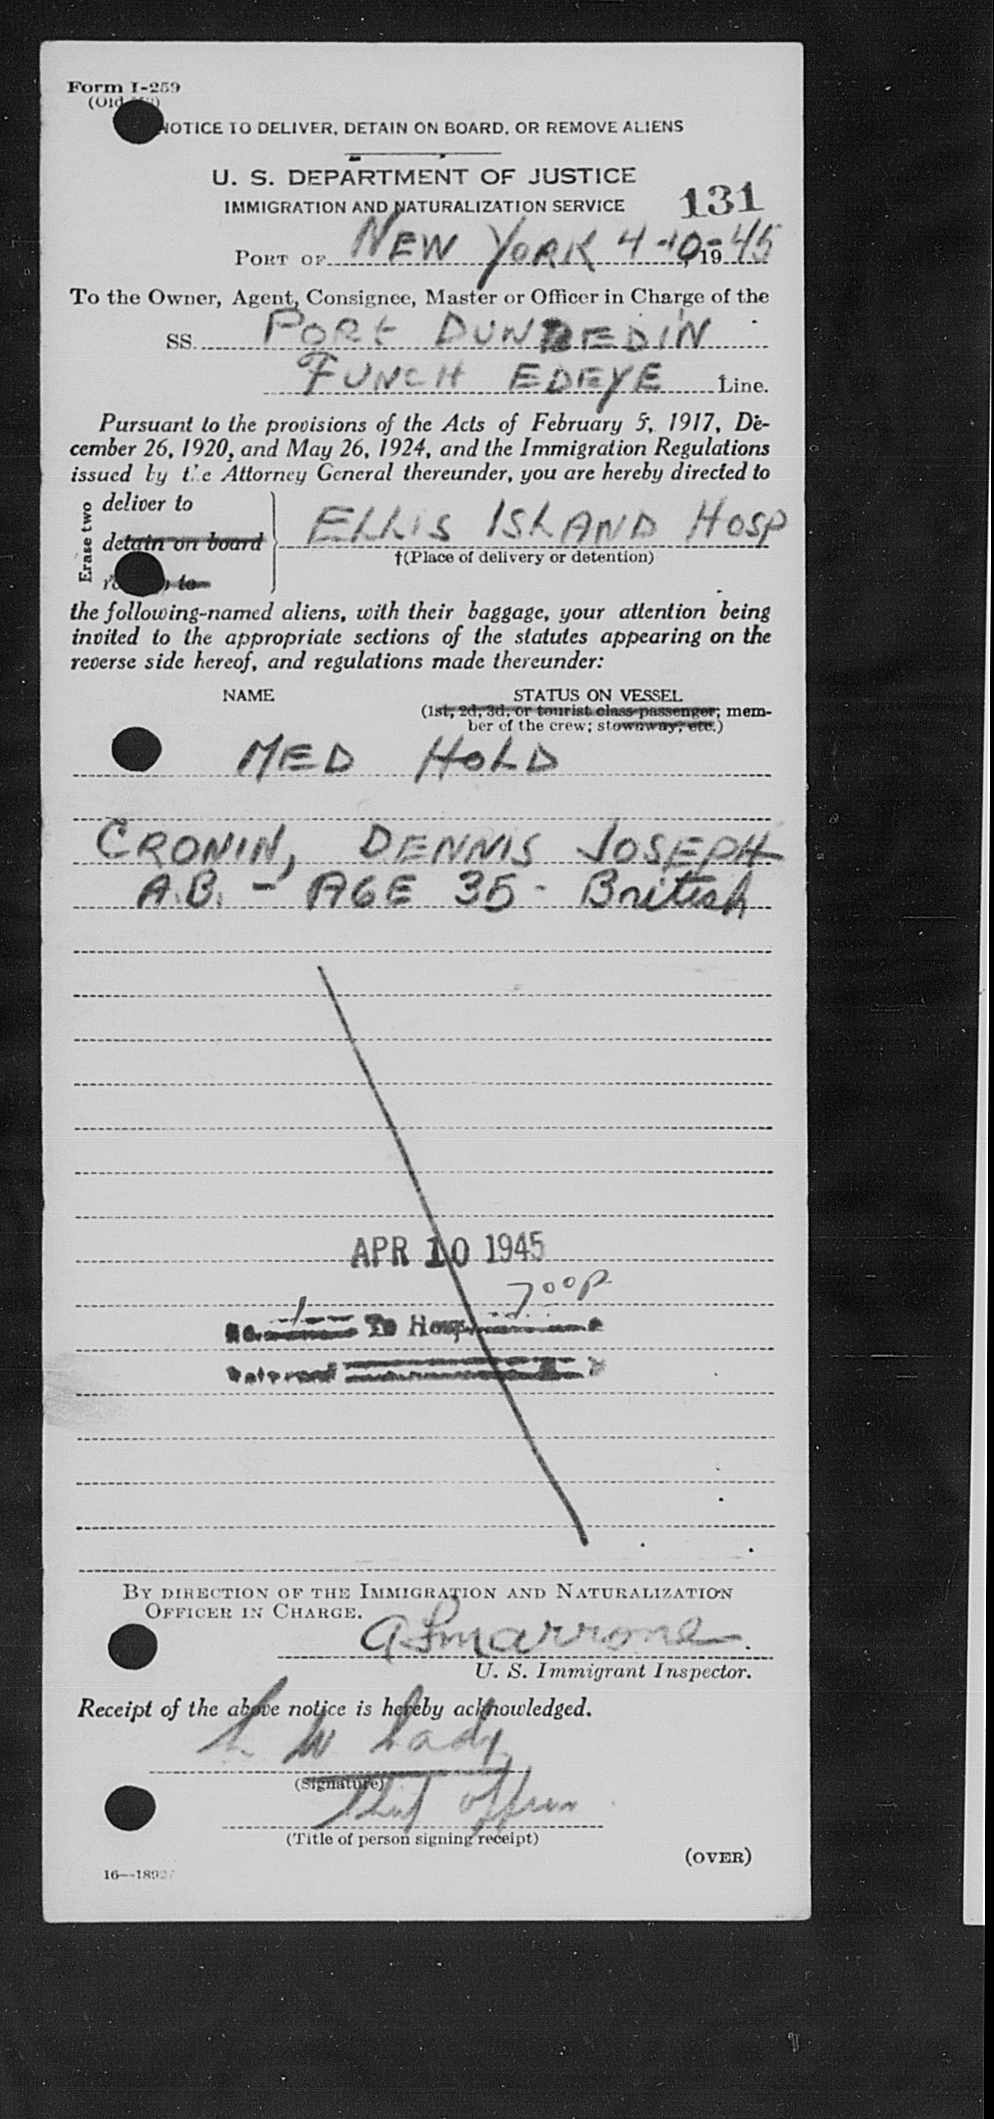 Form I-259
(Old
NOTICE TO DELIVER, DETAIN ON BOARD, OR REMOVE ALIENS
U. S. DEPARTMENT OF JUSTICE
IMMIGRATION AND NATURALIZATION SERVICE
131
PORT OF NEW YORK 4-10-, 1945
To the Owner, Agent, Consignee, Master or Officer in Charge of the
SS. PORT DUNEDIN
FUNCH EDEYE Line.
Pursuant to the provisions of the Acts of February 5, 1917, De-
cember 26, 1920, and May 26, 1924, and the Immigration Regulations
issued by the Attorney General thereunder, you are hereby directed to
Erase two
deliver to
detain on board
to
ELLIS ISLAND HOSP
†(Place of delivery or detention)
the following-named aliens, with their baggage, your attention being
invited to the appropriate sections of the statutes appearing on the
reverse side hereof, and regulations made thereunder:
NAME STATUS ON VESSEL
(1st, 2d, 3d, or tourist class passenger; mem-
ber of the crew; stowaway, etc.)
MED HOLD
CRONIN, DENNIS JOSEPH
A.B. - AGE 35 - British
APR 10 1945
700P
No. 1 To Hosp.
BY DIRECTION OF THE IMMIGRATION AND NATURALIZATION
OFFICER IN CHARGE.
U. S. Immigrant Inspector.
Receipt of the above notice is hereby acknowledged.
(Signature)
(Title of person signing receipt)
(OVER)